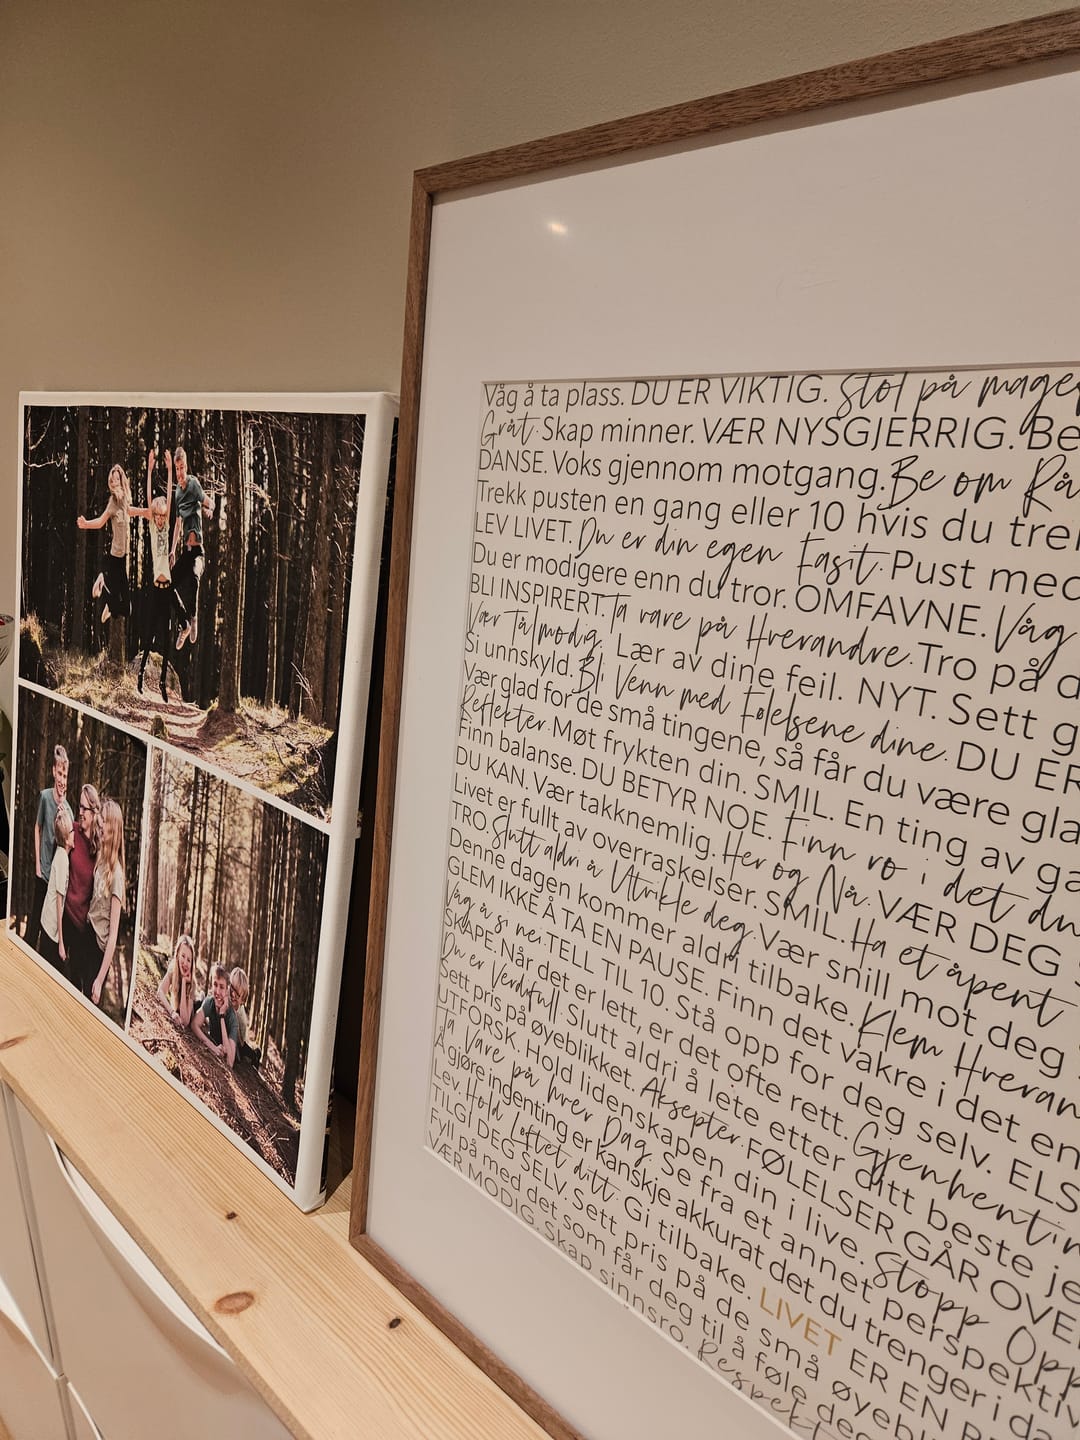 Våg å ta plass. DU ER VIKTIG. Stol på
Gråt. Skap minner. VÆR NYSGJERRIG. Be
DANSE. Voks gjennom motgang. Be om Rå
Trekk pusten en gang eller 10 hvis du tre
LEV LIVET. Du er din egen Fasit. Pust med
Du er modigere enn du tror. OMFAVNE. Våg
BLI INSPIRERT. Ta vare på Hverandre. Tro på d
Vær Tålmodig. Lær av dine feil. NYT. Sett g
Si unnskyld. Bli Venn med Følelsene dine. DU ER
Vær glad for de små tingene, så får du være gla
Reflekter. Møt frykten din. SMIL. En ting av ga
Finn balanse. DU BETYR NOE. Finn ro i det du
DU KAN. Vær takknemlig. Her og Nå. VÆR DEG
Livet er fullt av overraskelser. SMIL. Ha et åpent
TRO. Slutt aldri å Utvikle deg. Vær snill mot deg
Denne dagen kommer aldri tilbake. Klem Hveran
GLEM IKKE Å TA EN PAUSE. Finn det vakre i det en
Våg å si nei. TELL TIL 10. Stå opp for deg selv. ELS
SKAPE. Når det er lett, er det ofte rett. Gjenhentin
Du er Verdifull. Slutt aldri å lete etter ditt beste je
Sett pris på øyeblikket. Aksepter. FØLELSER GÅR OVE
UTFORSK. Hold lidenskapen din i live. Stopp Opp
Ta Vare på hver Dag. Se fra et annet perspektiv
Å gjøre ingenting er kanskje akkurat det du trenger i da
Lev. Hold Løftet ditt. Gi tilbake. LIVET ER EN
TILGI DEG SELV. Sett pris på de små øyebli
Fyll på med det som får deg til å føle deg
VÆR MODIG. Skap sinnsro. Respekt